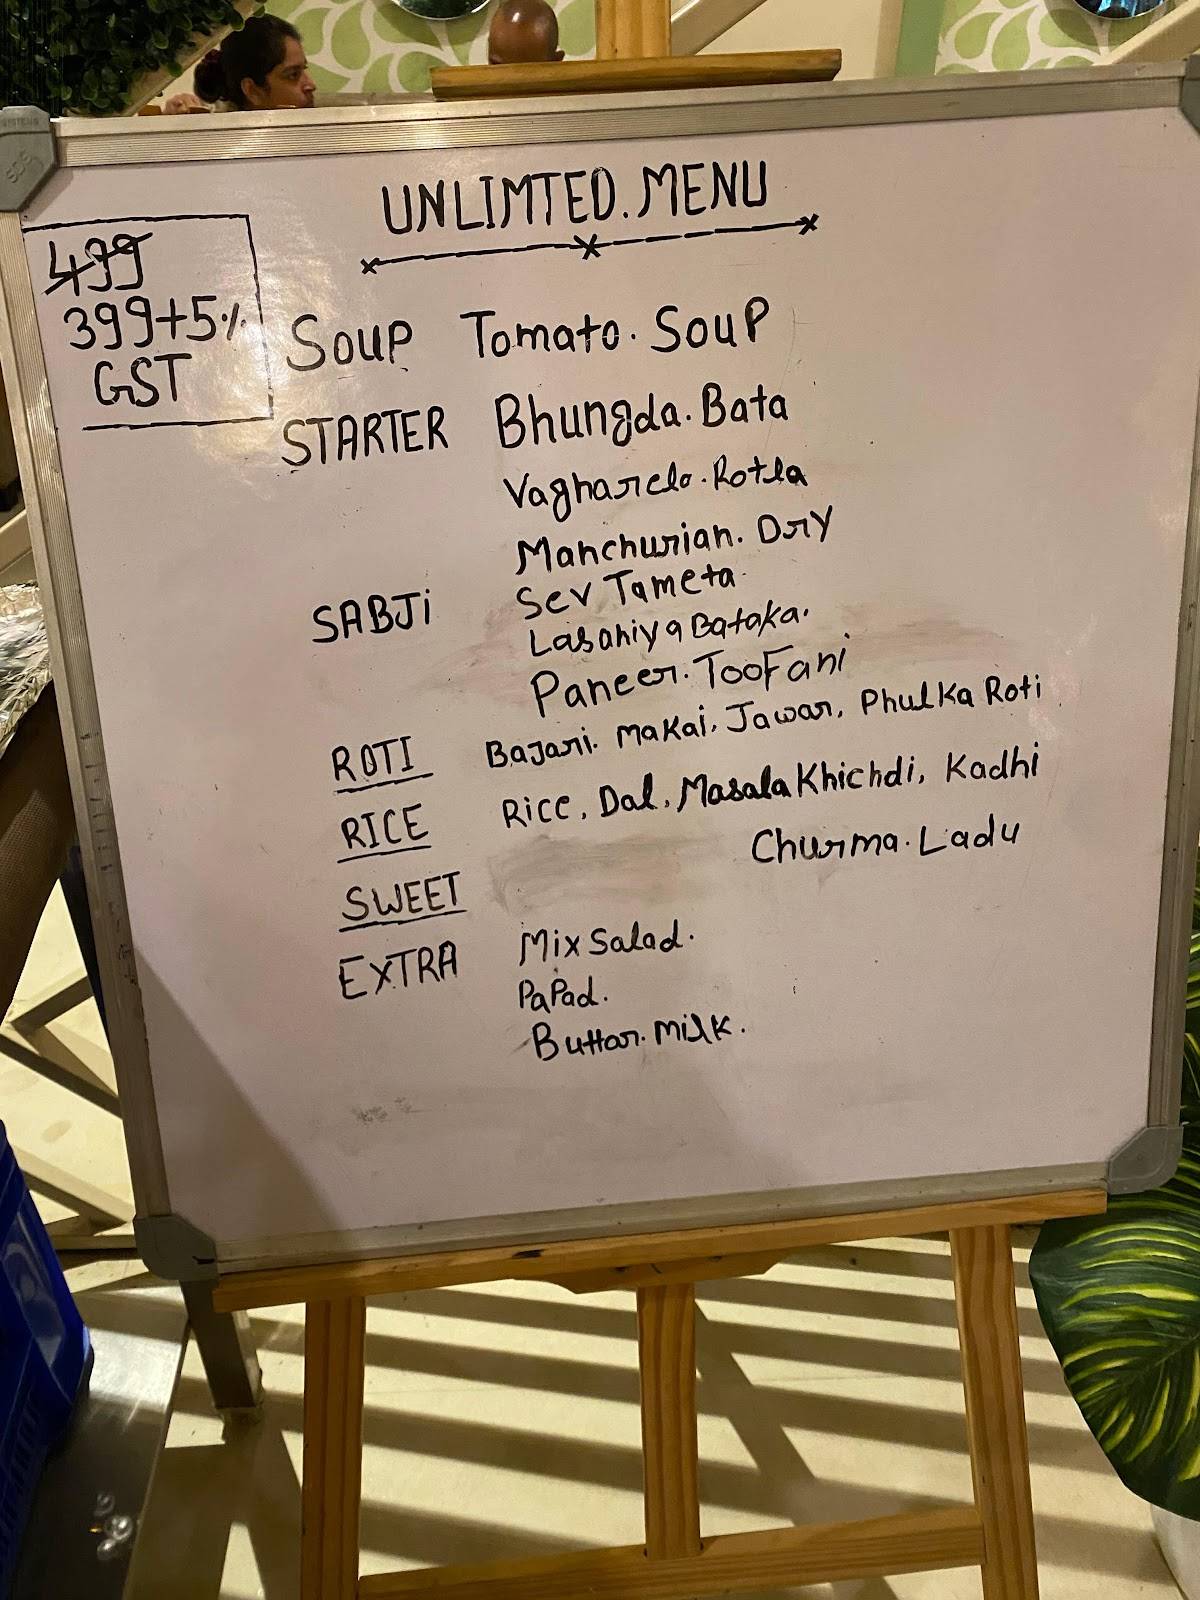 UNLIMTED. MENU
499
399+5%
GST
SOUP Tomato. Soup
STARTER Bhungda. Bata
Vagharelo. Rotla
Manchurian. Dry
SABJi Sev Tameta.
Lasaniya Bataka.
Paneer. TooFani
ROTI Bajari. Makai, Jawar, Phulka Roti
RICE Rice, Dal, Masala Khichdi, Kadhi
SWEET Churma. Ladu
EXTRA Mix Salad.
PaPad.
Buttar. milk.